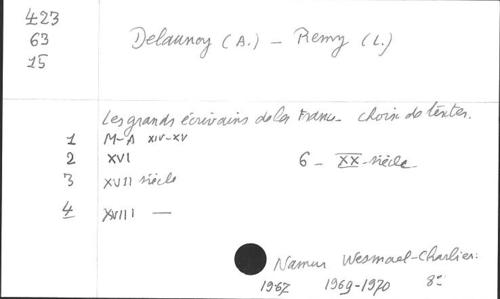 423
63
15
Delaunoy (A.) - Remy (L.)
Les grands écrivains de la France - choix de textes.
1 M-A XIV-XV
2 XVI
6 - XX-siècle
3 XVII siècle
4 XVIII —
Namur Wesmael-Charlier.
1967 1969-1970 8°